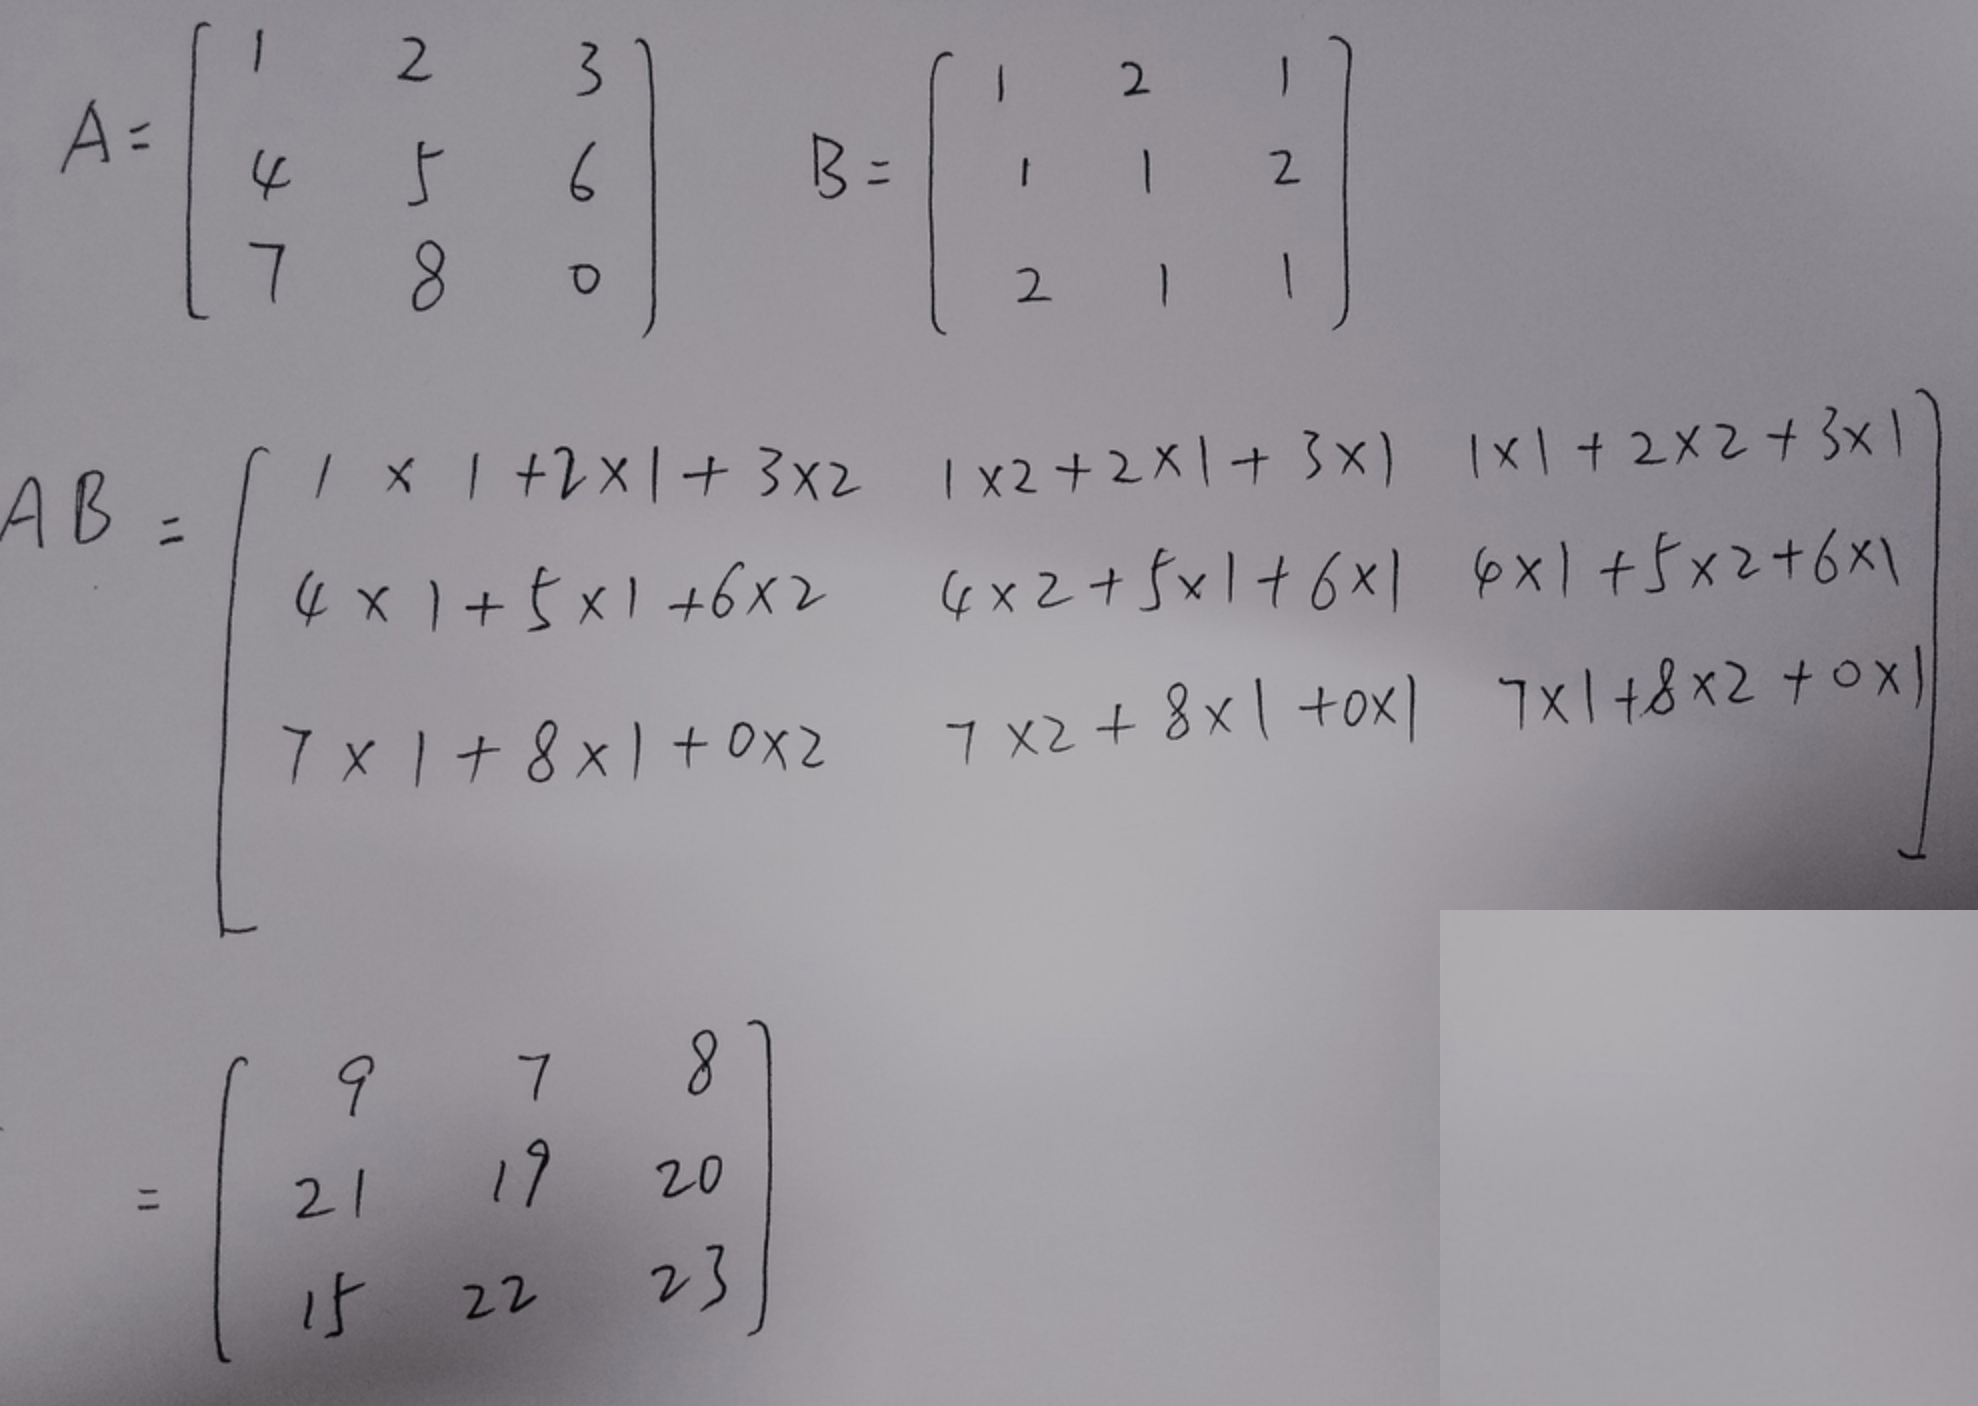 A = [ 1 2 3 B = [ 1 2 1
4 5 6 1 1 2
7 8 0 ] 2 1 1 ]
AB = [ 1 × 1 + 2 × 1 + 3 × 2 1 × 2 + 2 × 1 + 3 × 1 1 × 1 + 2 × 2 + 3 × 1
4 × 1 + 5 × 1 + 6 × 2 4 × 2 + 5 × 1 + 6 × 1 4 × 1 + 5 × 2 + 6 × 1
7 × 1 + 8 × 1 + 0 × 2 7 × 2 + 8 × 1 + 0 × 1 7 × 1 + 8 × 2 + 0 × 1 ]
= [ 9 7 8
21 19 20
15 22 23 ]